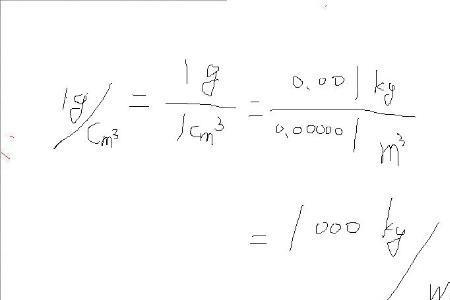 1g/cm³ = 1g / 1cm³ = 0.001kg / 0.000001 m³
= 1000 kg/